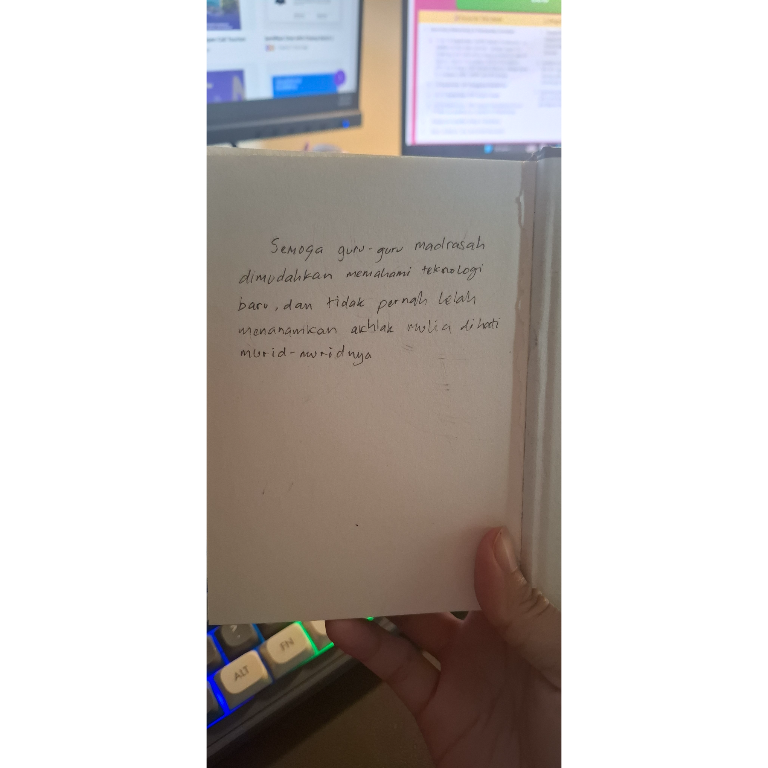 Semoga guru-guru madrasah
dimudahkan memahami teknologi
baru, dan tidak pernah lelah
menanamkan akhlak mulia dihati
murid-muridnya
ALT
FN